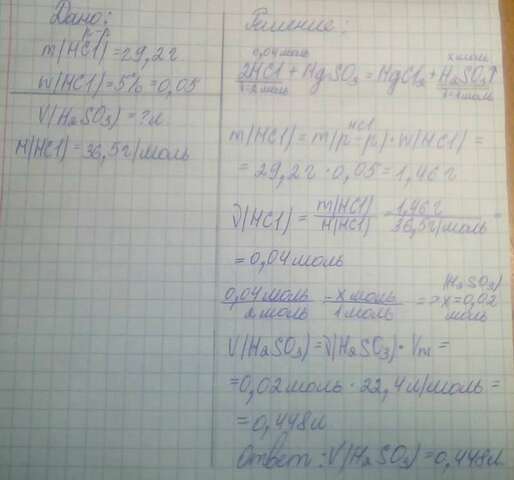 Дано:
р-р
m(HCl)=29,2г
w(HCl)=5%=0,05
V(H2SO3)=?л
M(HCl)=36,5г/моль
Решение:
0,04моль х моль
2HCl+MgSO3=MgCl2+H2SO3↑
ν=2моль ν=1моль
HCl
m(HCl)=m(р-р)·w(HCl)=
=29,2г·0,05=1,46г
ν(HCl)=m(HCl)/M(HCl)=1,46г/36,5г/моль=
=0,04моль
(H2SO3)
0,04моль/2моль=х моль/1моль=>х=0,02
моль
V(H2SO3)=ν(H2SO3)·Vm=
=0,02моль·22,4л/моль=
=0,448л
Ответ:V(H2SO3)=0,448л